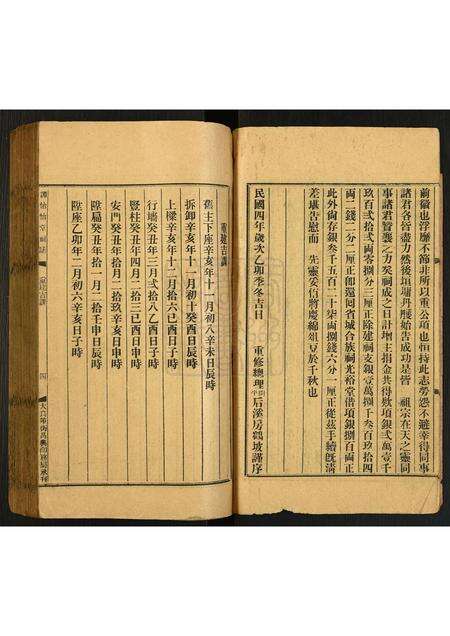 前徽也浮靡不節非所以重公項也恒持此志勞怨不避幸得同事
諸君各皆盡力然後垣墉丹雘始告成功是皆　祖宗在天之靈同
事諸君贊襄之力矣祠成之日計增主捐金共得欵項銀弍萬壹千
玖百弍拾弍兩零捌分三厘正除建祠支銀壹萬捌千叁百玖拾四
兩二錢二分二厘正卽還闔省城合族祠光裕堂借項銀捌百兩正
此外尙存銀叁千五百二十柒兩捌錢六分一厘正從茲手續旣淸
差堪告慰而　先靈妥侑將慶綿俎豆於千秋也
民國四年歲次乙卯季冬吉日　重修總理后溪房鶴坡謹序
重建吉課
舊主下座辛亥年十一月初八辛未日辰時
拆卸辛亥年十一月初十癸酉日辰時
上樑辛亥年十二月拾六己酉日子時
行墻癸丑年三月弍拾八乙酉日子時
豎柱癸丑年四月二拾三己酉日申時
安門癸丑年拾月二拾玖辛亥日申時
陞扁癸丑年拾二月二拾壬申日辰時
陞座乙卯年二月初六辛亥日子時
譚怡怡堂祠誌
重建吉課
四